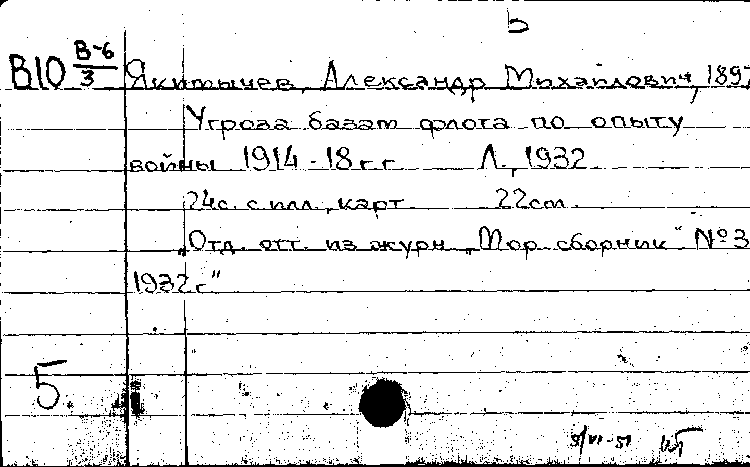 Ь
В10 В-6/3 Якимычев, Александр Михайлович, 1897
Угроза базам флота по опыту
войны 1914-18 г.г. Л., 1932
24с. с илл., карт. 22cm.
„Отд. отт. из журн „Мор. сборник" №3
1932г"
5.
5/VI-51